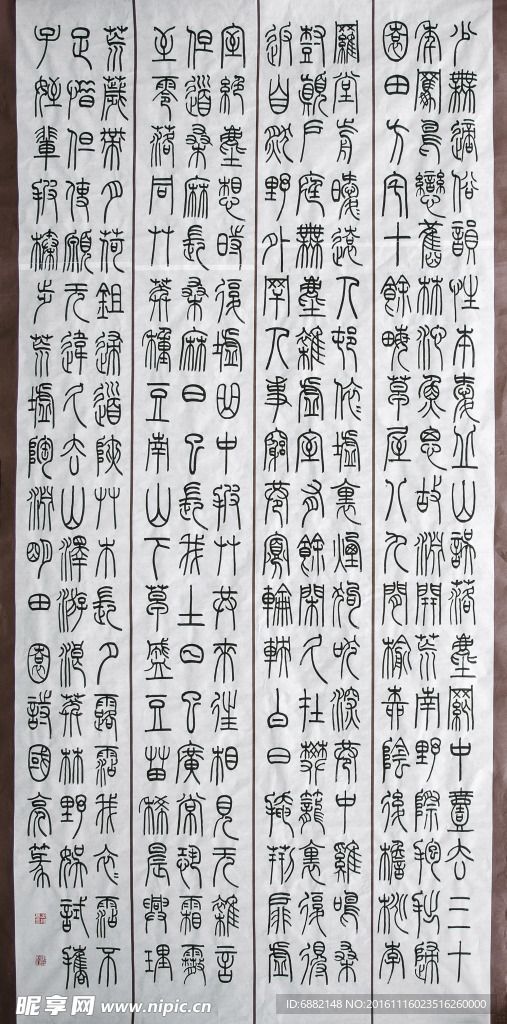 少無適俗韻性本愛丘山誤落塵網中壹去三十
年羈鳥戀舊林池魚思故淵開荒南野際抱拙歸
園田方宅十餘畮草屋八九間榆柳陰後檐桃李
羅堂前曖遠人邨依墟裏煙狗吠深巷中雞鳴桑
樹顛戶庭無塵雜虛室有餘閑久在樊籠裏復得
返自然野外罕人事窮巷寡輪鞅白日掩荊扉虛
室絕塵想時復墟曲中披艸共來往相見无雜言
但道桑麻長桑麻日已長我土日已廣常恐霜霰
至零落同艸莽種豆南山下草盛豆苗稀晨興理
荒薉帶月荷鉏歸道陝艸木長夕露霑我衣゠霑不
足惜但使願无違久去山澤游浪莽林野娛試攜
子姪輩披榛步荒墟陶淵明田園詩國亮篆
昵享网 www.nipic.cn
ID:6882148 NO:20161116023516260000